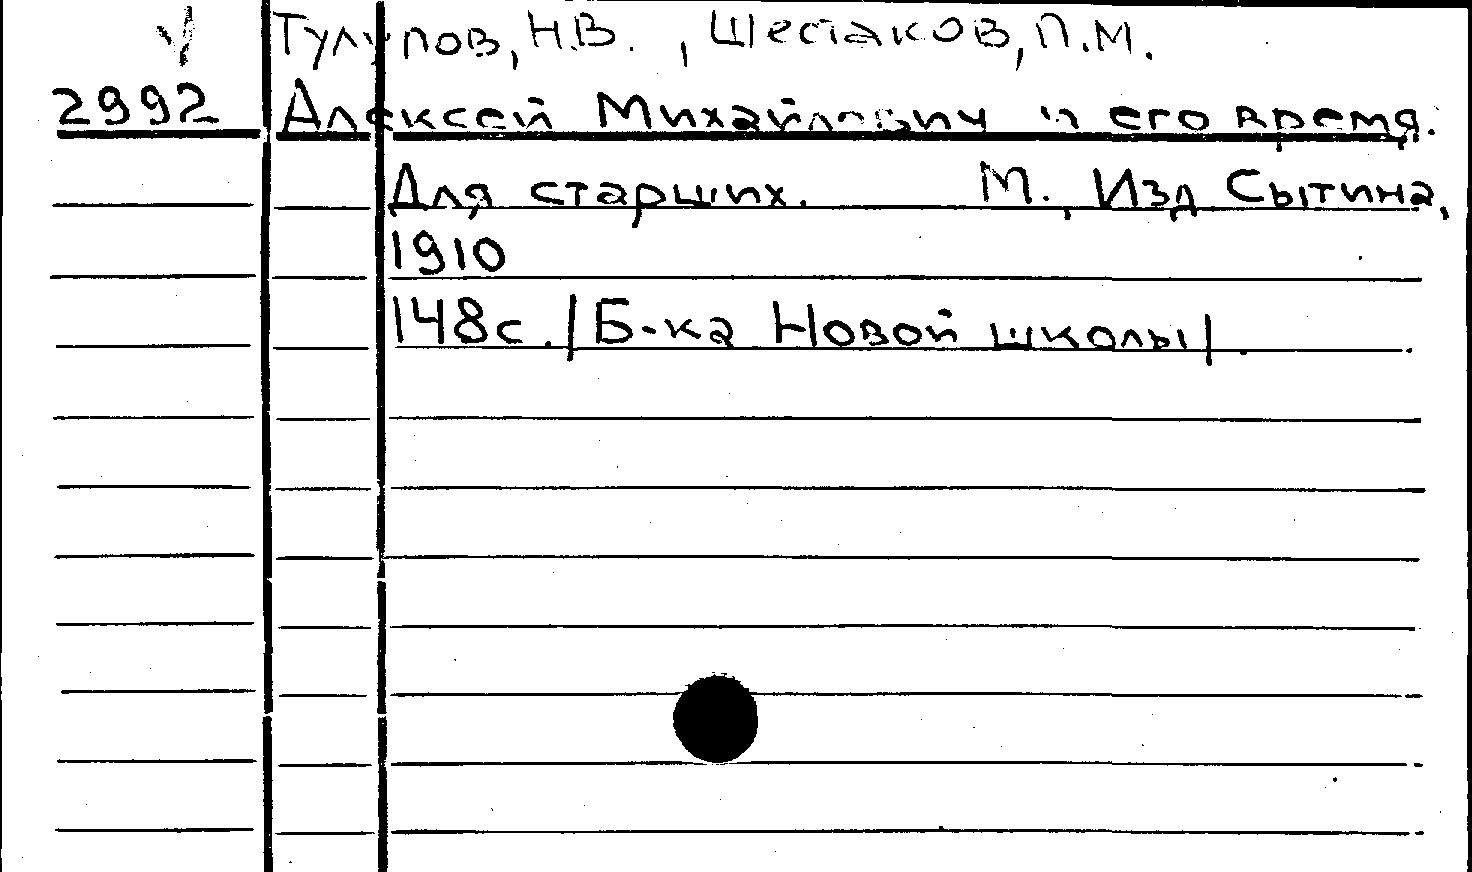 √ Тулупов, Н.В. , Шестаков, П.М.
2992 Алексей Михайлович и его время.
Для старших. М., Изд Сытина,
1910
148с. /Б-ка Новой школы/.